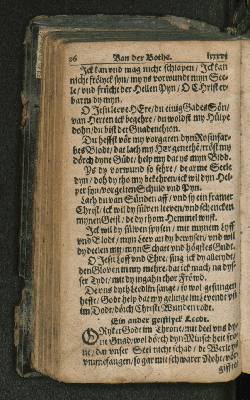 96 Van der Bothe.
Jck kan vnd mag nicht schlapen / Jck kan
nicht frölyck syn / myns vorwundt myn See
le / vnd früchtet der Hellen Pyn / O Christ er-
barm dy myn.
O Jesu leve HEre / du einig Gades Sön /
van Herten ick begehre / du woldst my Hülpe
dohn / du bist der Gnadenthron.
Du heffst vör my vorgaten dyn Rosinfar-
bes Blodt / dat lath my Her geneten / tröst my
dörch dyne Güdt / help my dat ys myn Bidd.
Ys dy vorwundt so sehre / de arme Seele
dyn / doh dy tho my bekehren / ick wil dyn Hel-
per syn / vorgeven Schuld vnd Pyn.
Lath du van Sünden aff / vnd sy ein framer
Christ / ick wil dy leven / vnd schencken
mynen Geist / de dy thom Hemmel wyst.
Jck wil dy sülven spysen / mit mynem Lyff
vnd Blodt / myn leve an dy bewysen / vnd wil
dy deelen mit / myn Schatt vnd högstes Gudt.
O Jesu Loff vnd Ehre / sing ick dy all
den Gloven in my mehre / dat ick nach / na dys-
ser Tydt / mit dy ingahn thor Fröwd.
De vns dyth Ledlin sange / so wol gesungen
hefft / Godt help dat my gelinge im Levendt vnd
im Dodt / dörch Christi Wunden rodt.
Ein ander geistlyck Leedt.
O Ryker Godt im Throne / mit deel vns dy-
ne Gnad / wol dörch dyn Müscheit frö-
ne / dan vnser Seel nicht schad / de Werle
vmmefangen / so gar mit schwarer Nohe / vor
gifft